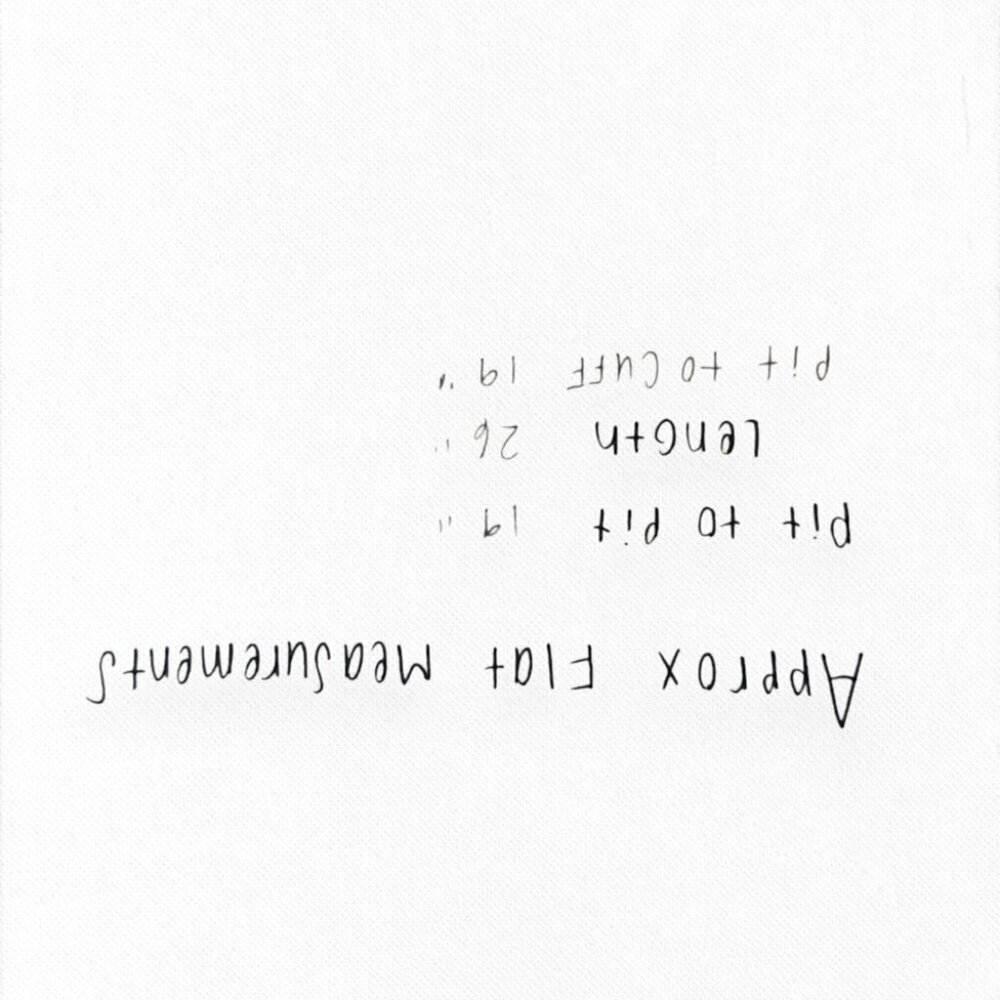 Approx Flat Measurements
Pit to Pit 19"
Length 26"
Pit to Cuff 19"